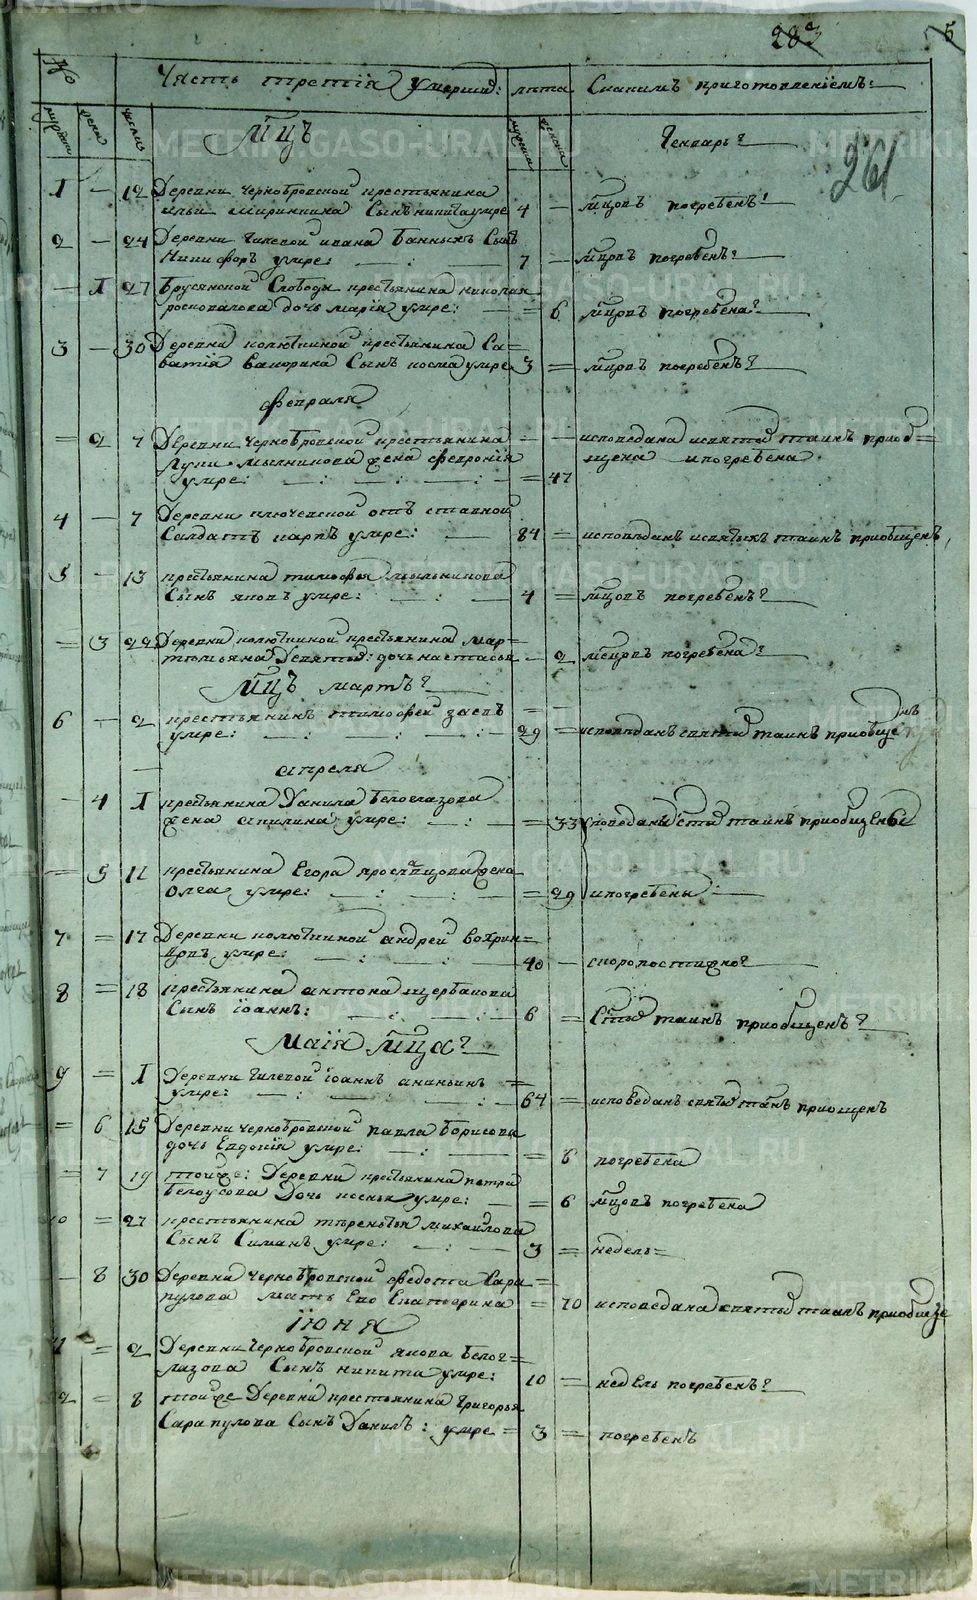 283 5
№ Часть третия Умерши: лѣта Скакимъ приготовлениемъ:
мужска женс числа Мцъ мужска женска Генварь 261
1 — 12 Деревни Чернобровской крестьянина
ильи Сынъ никита умре 4 — мцовъ погребенъ
2 — 24 Деревни Гилевой ивана Банныхъ Сынъ
Никифоръ умре: 7 — мцовъ погребенъ
— 1 27 Брусянской Слободы крестьянина николая
росковалова дочь марія умре: = 6 мцовъ погребена
3 — 30 Деревни колюткиной крестьянина Са=
ватія Вахорина Сынъ косма умре 3 = мцовъ погребенъ
февраля
= 2 7 Деревни Чернобровской крестьянина — — исповедана исвятых таинъ приоб=
Луки Мыльникова жена феврония щена ипогребена
умре: = 47
4 — 7 Деревни ключевской отъ ставной
Салдатъ карпъ умре: 84 = исповѣданъ исвятыхъ таинъ приобщенъ
5 — 13 крестьянина тимофея мыльникова
Сынъ яковъ умре: 4 = мцовъ погребенъ
= 3 22 Деревни колюткиной крестьянина мар=
темьяна Девятых: дочь настасья — 2 мсцовъ погребена
Мцъ мартъ
6 — 2 крестьянинъ тимофей заевъ =
умре: 29 = исповѣданъ святых таинъ приобще нъ
апреля
— 4 1 крестьянина Данила Белоглазова
жена акилина умре: = 33 споведаны стых таинъ приобщены
— 5 11 крестьянина Егора ярославцова жена
Олга умре: = 29 ипогребены
7 = 17 Деревни колюткиной андрей Вохрин=
цовъ умре: 40 — скоропостижно
8 = 18 крестьянина антона щербакова
Сынъ іоаннъ: 6 = Стых таинъ приобщенъ
Маія мца
9 = 1 Деревни Гилевой іоаннъ ананьинъ =
умре: 64 = исповеданъ святых таинъ приощенъ
= 6 15 Деревни чернобровской павла Борисова
дочь Евдокія умре: = 8 погребена
= 7 19 тойже: Деревни крестьянина петра
Белоусова Дочь ксенья умре: = 6 мцовъ погребена
10 = 27 крестьянина терентья михаилова
Сынъ Симанъ умре: 3 = недель=
— 8 30 Деревни чернобровской федота Сара=
пулова мать Ево Екатерина = 70 исповедана святых таинъ приобще
іюня
11 = 2 Деревни Чернобровской якова Белог=
лазова Сынъ никита умре: 10 = недель погребенъ
12 = 8 тойже Деревни крестьянина Григорья
Сарапулова Сынъ Данилъ: умре = 3 = погребенъ
METRIKI.GASO-URAL.RU